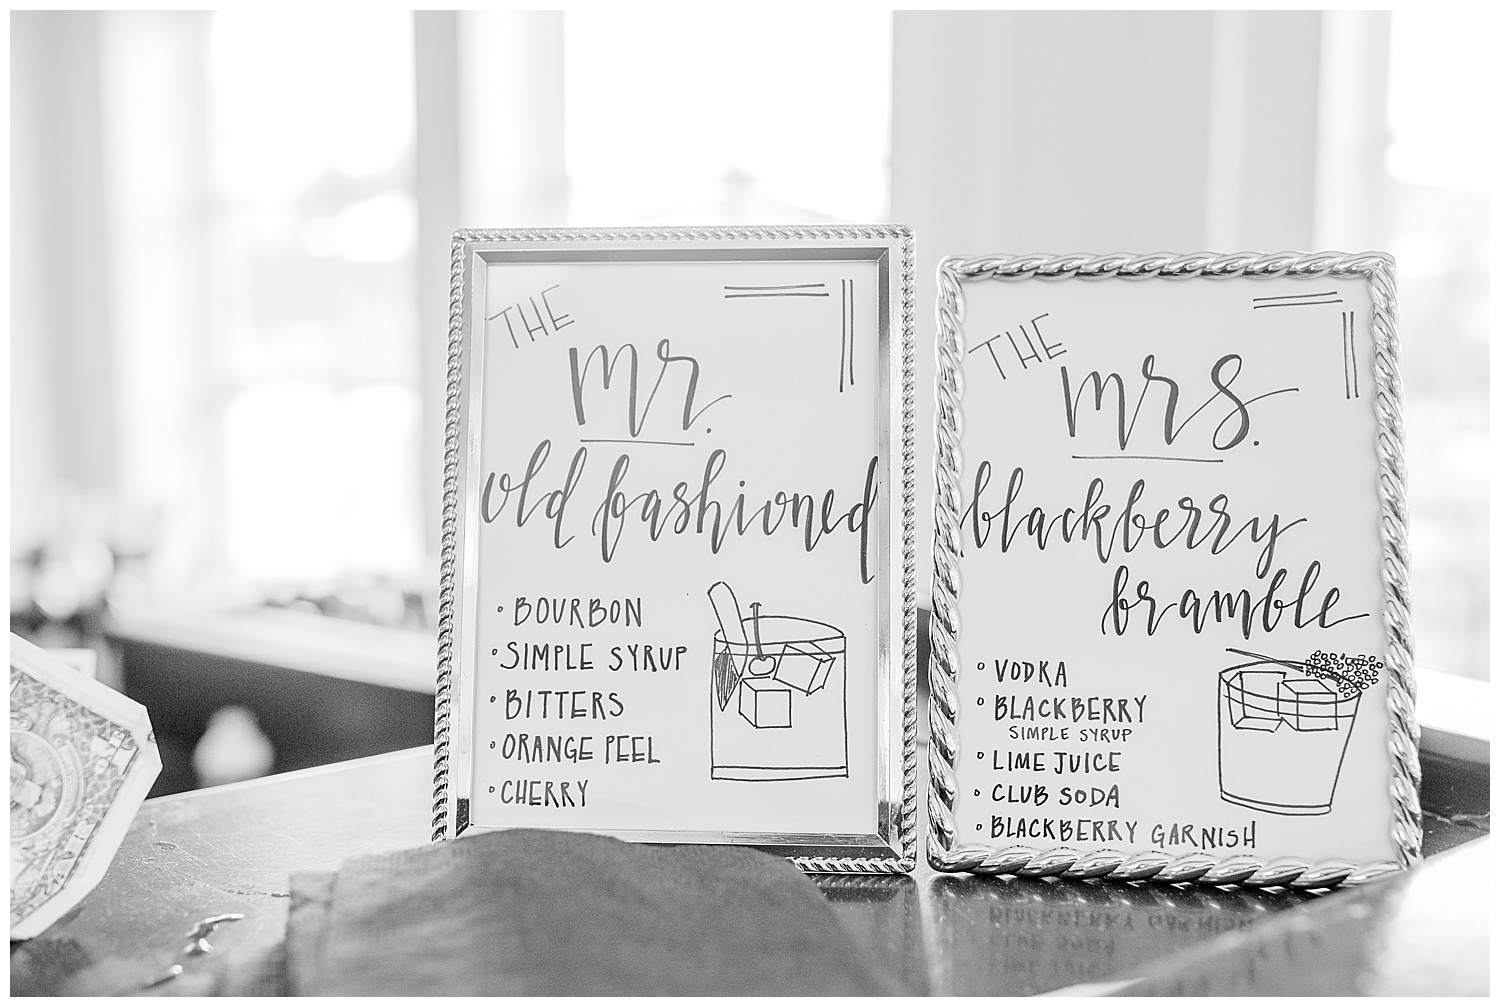 THE
mr.
old fashioned
° BOURBON
° SIMPLE SYRUP
° BITTERS
° ORANGE PEEL
° CHERRY
THE
mrs.
blackberry
bramble
° VODKA
° BLACKBERRY
SIMPLE SYRUP
° LIME JUICE
° CLUB SODA
° BLACKBERRY GARNISH